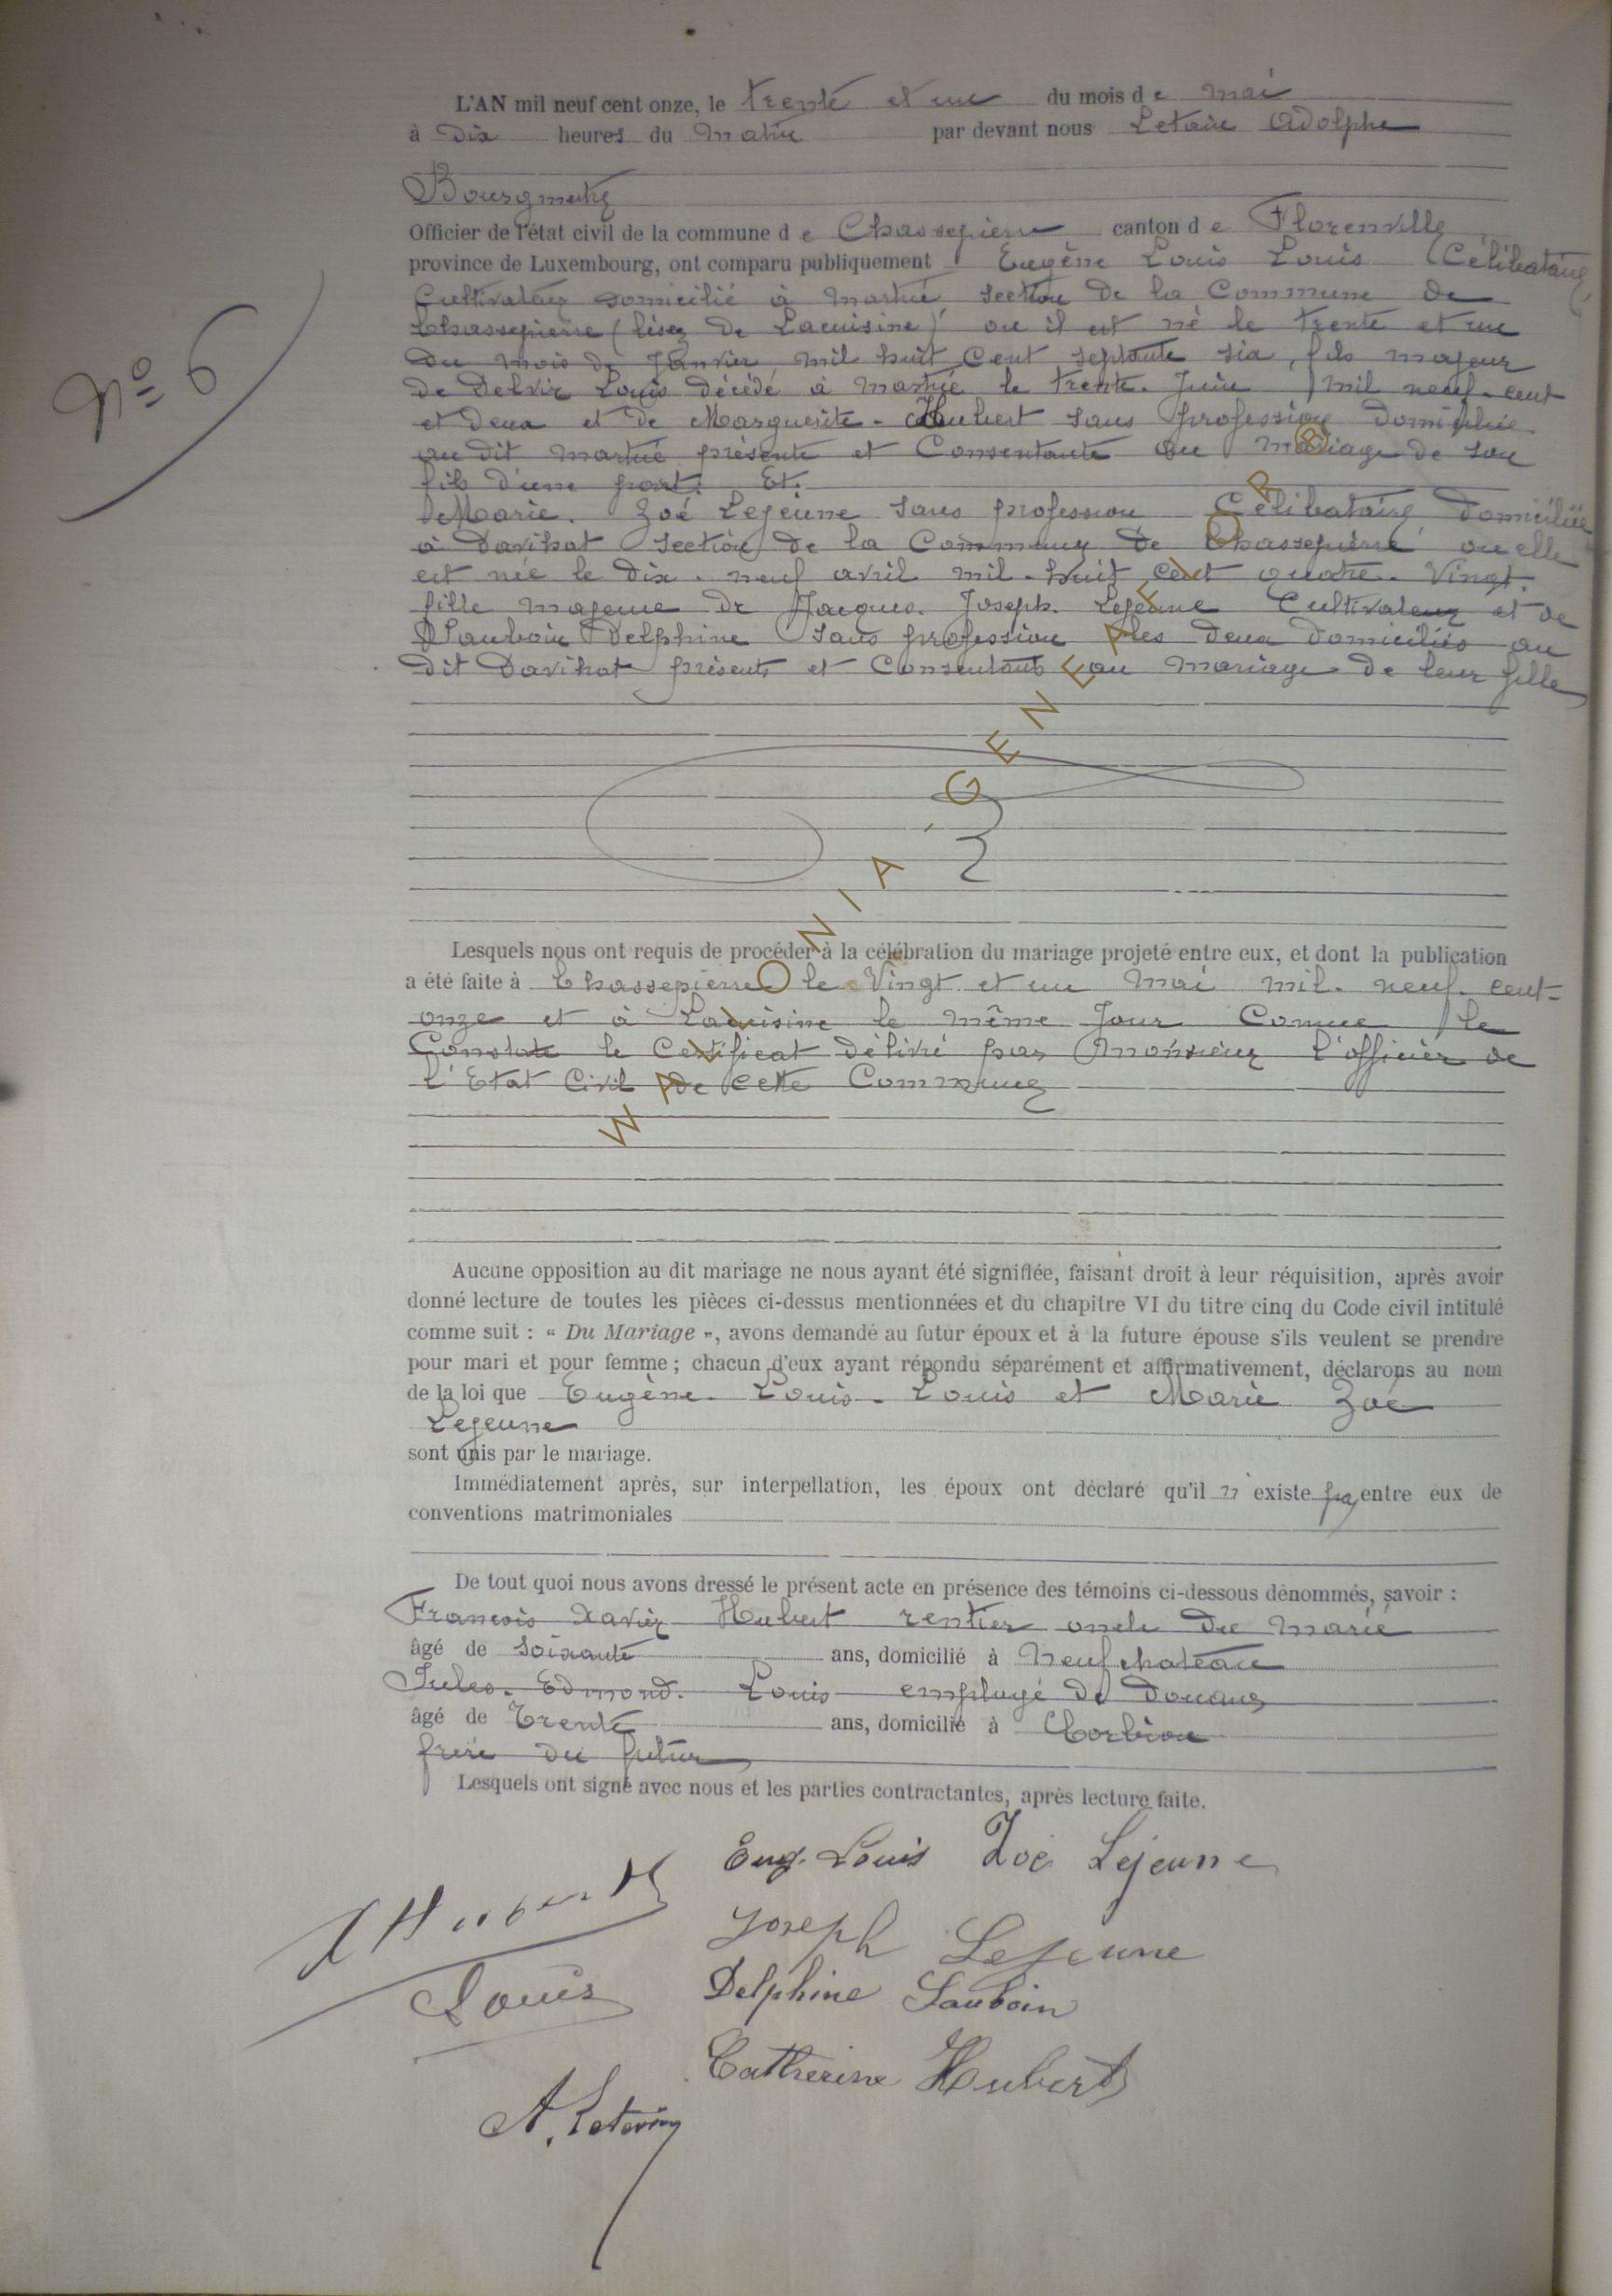 N° 6
L'AN mil neuf cent onze, le trente et un du mois de mai
à dix heures du matin par devant nous Letaie Adolphe
Bourgmestre
Officier de l'état civil de la commune de Chassepierre canton de Florenville
province de Luxembourg, ont comparu publiquement Eugène Louis Louis Célibataire
Cultivateur domicilié à Martué section de la Commune de
Chassepierre (lisez de Lacuisine) ou il est né le trente et un
du mois de Janvier mil huit cent septante six, fils majeur
de Delvir Louis décédé à Martué le trente Juin mil neuf-cent
et deux et de Marguerite - Hubert sans profession domiciliée
au dit Martué présente et Consentante au mariage de son
fils d'une part. Et.
Marie. Zoé Lejeune sans profession Célibataire domiciliée
à Davihat section de la Commune de Chassepierre ou elle
est née le dix-neuf avril mil-huit cent quatre-vingt
fille majeure de Jacques. Joseph. Lejeune Cultivateur et de
Sauboin Delphine sans profession les deux domiciliés au
dit Davihat présents et Consentants au mariage de leur fille
Lesquels nous ont requis de procéder à la célébration du mariage projeté entre eux, et dont la publication
a été faite à Chassepierre le Vingt et un Mai mil-neuf-cent-
onze et à Lacuisine le même Jour Comme le
Constate le Certificat délivré par Monsieur l'officier de
l'Etat Civil de cette Commune
Aucune opposition au dit mariage ne nous ayant été signifiée, faisant droit à leur réquisition, après avoir
donné lecture de toutes les pièces ci-dessus mentionnées et du chapitre VI du titre cinq du Code civil intitulé
comme suit : « Du Mariage », avons demandé au futur époux et à la future épouse s'ils veulent se prendre
pour mari et pour femme ; chacun d'eux ayant répondu séparément et affirmativement, déclarons au nom
de la loi que Eugène-Louis-Louis et Marie Zoé
Lejeune
sont unis par le mariage.
Immédiatement après, sur interpellation, les époux ont déclaré qu'il n existe pas entre eux de
conventions matrimoniales
De tout quoi nous avons dressé le présent acte en présence des témoins ci-dessous dénommés, savoir :
Francois Xavier Hubert rentier oncle du marié
âgé de soixante ans, domicilié à Neufchateau
Jules-Edmond. Louis employé de Douane
âgé de Trente ans, domicilié à Corbion
frère du futur
Lesquels ont signé avec nous et les parties contractantes, après lecture faite.
Eug. Louis Zoé Lejeune
X Hubert
Joseph Lejeune
Louis
Delphine Sauboin
Catherine Hubert
WALLONIA-GENEALOR ®